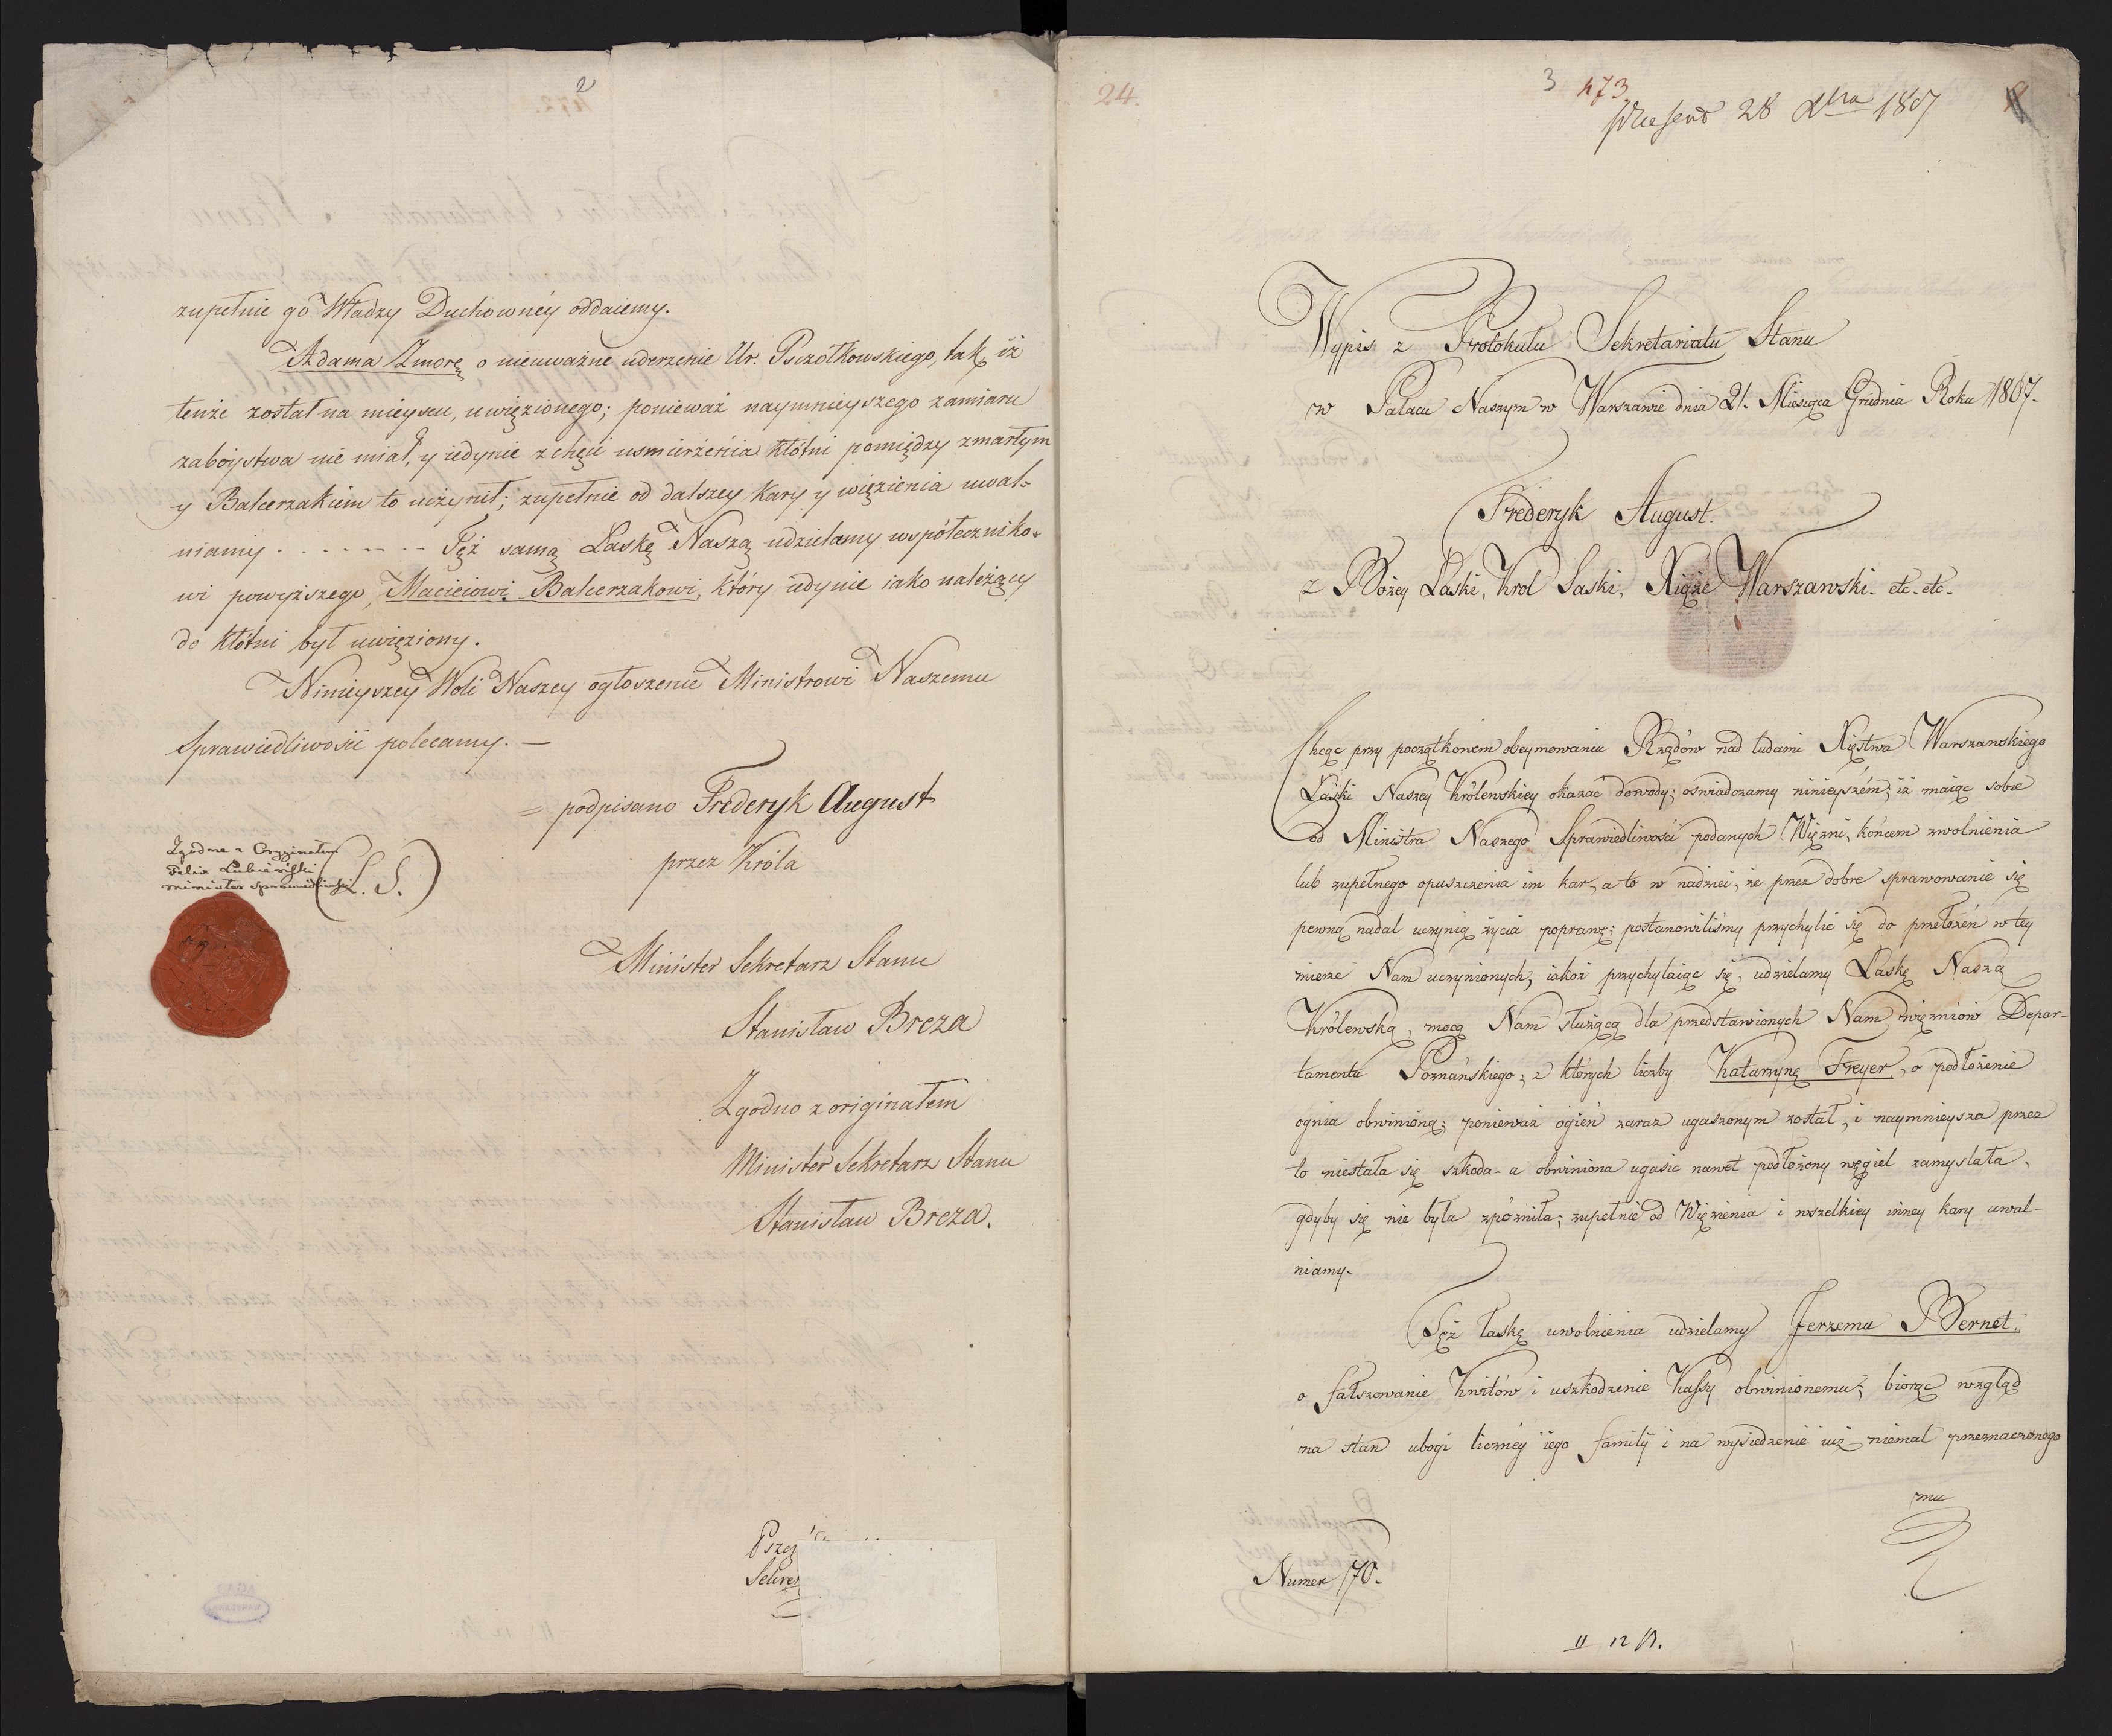 2
zupełnie go Władzy Duchownéy oddaiemy.
Adama Zmorę o nieuważne uderzenie Ur. Pszczółkowskiego, tak iż
tenże został na mieyscu, uwięzionego; ponieważ naymnieyszego zamiaru
zaboystwa nie miał, y iedynie z chęci usmierzenia kłótni pomiędzy zmarłym
y Balcerzakiem to uczynił; zupełnie od dalszey kary y więzienia uwal-
niamy . . . . . . . Tęż samą Łaskę Naszą udzielamy współeczniko-
wi powyższego, Macieiowi Balcerzakowi, który iedynie iako należący
do kłótni był uwięziony.
Ninieyszey Woli Naszey ogłoszenie Ministrowi Naszemu
Sprawiedliwości polecamy. —
= podpisano Frederyk August
przez Króla
Zgodne z Oryginałem
Felix Łubieński
minister sprawiedliwości
(L. S.)
Minister Sekretarz Stanu
Stanisław Breza
Zgodno z originałem
Minister Sekretarz Stanu
Stanisław Breza.
24.
3 473.
28 1807
Wypis z Protokułu Sekretariatu Stanu
w Pałacu Naszym w Warszawie dnia 21. Miesiąca Grudnia Roku 1807.
Frederyk August
z Bożey Łaski, Krol Saski, Xiąże Warszawski. etc. etc.
Chcąc przy początkowem obeymowaniu Rządów nad ludami Xięstwa Warszawskiego
Łaski Naszey Królewskiey okazać dowody; oswiadczamy ninieyszém; iż maiąc sobie
od Ministra Naszego Sprawiedliwości podanych Więzni, końcem zwolnienia
lub zupełnego opuszczenia im kar, a to w nadziei, że przez dobre sprawowanie się
pewną nadal uczynią życia poprawę; postanowiliśmy przychylić się do przełożeń w tey
mierze Nam uczynionych, iakoż przychylaiąc się, udzielamy Łaskę Naszą
Królewską, mocą Nam służącą dla przedstawionych Nam więzniów Depar-
tamentu Poznańskiego; z których liczby Katarzynę Freyer, o podłożenie
ognia obwinioną; ponieważ ogień zaraz ugaszonym został, i naymnieysza przez
to niestała się szkoda - a obwiniona ugasić nawet podłożony węgiel zamyslała,
gdyby się nie była zpózniła; zupełnie od Więzienia i wszelkiey inney kary uwal-
niamy.
Tęż łaskę uwolnienia udzielamy Jerzemu Bernet.
o fałszowanie Kwitów i uszkodzenie Kassy obwinionemu; biorąc wzgląd
na stan ubogi liczney iego familij i na wysiedzenie iuż niemal przeznaczonego
mu
Numer 170.
II 12 B.